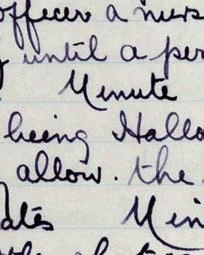 officer a mess
until a per
Minute
being Hallo
allow. the
ates Min